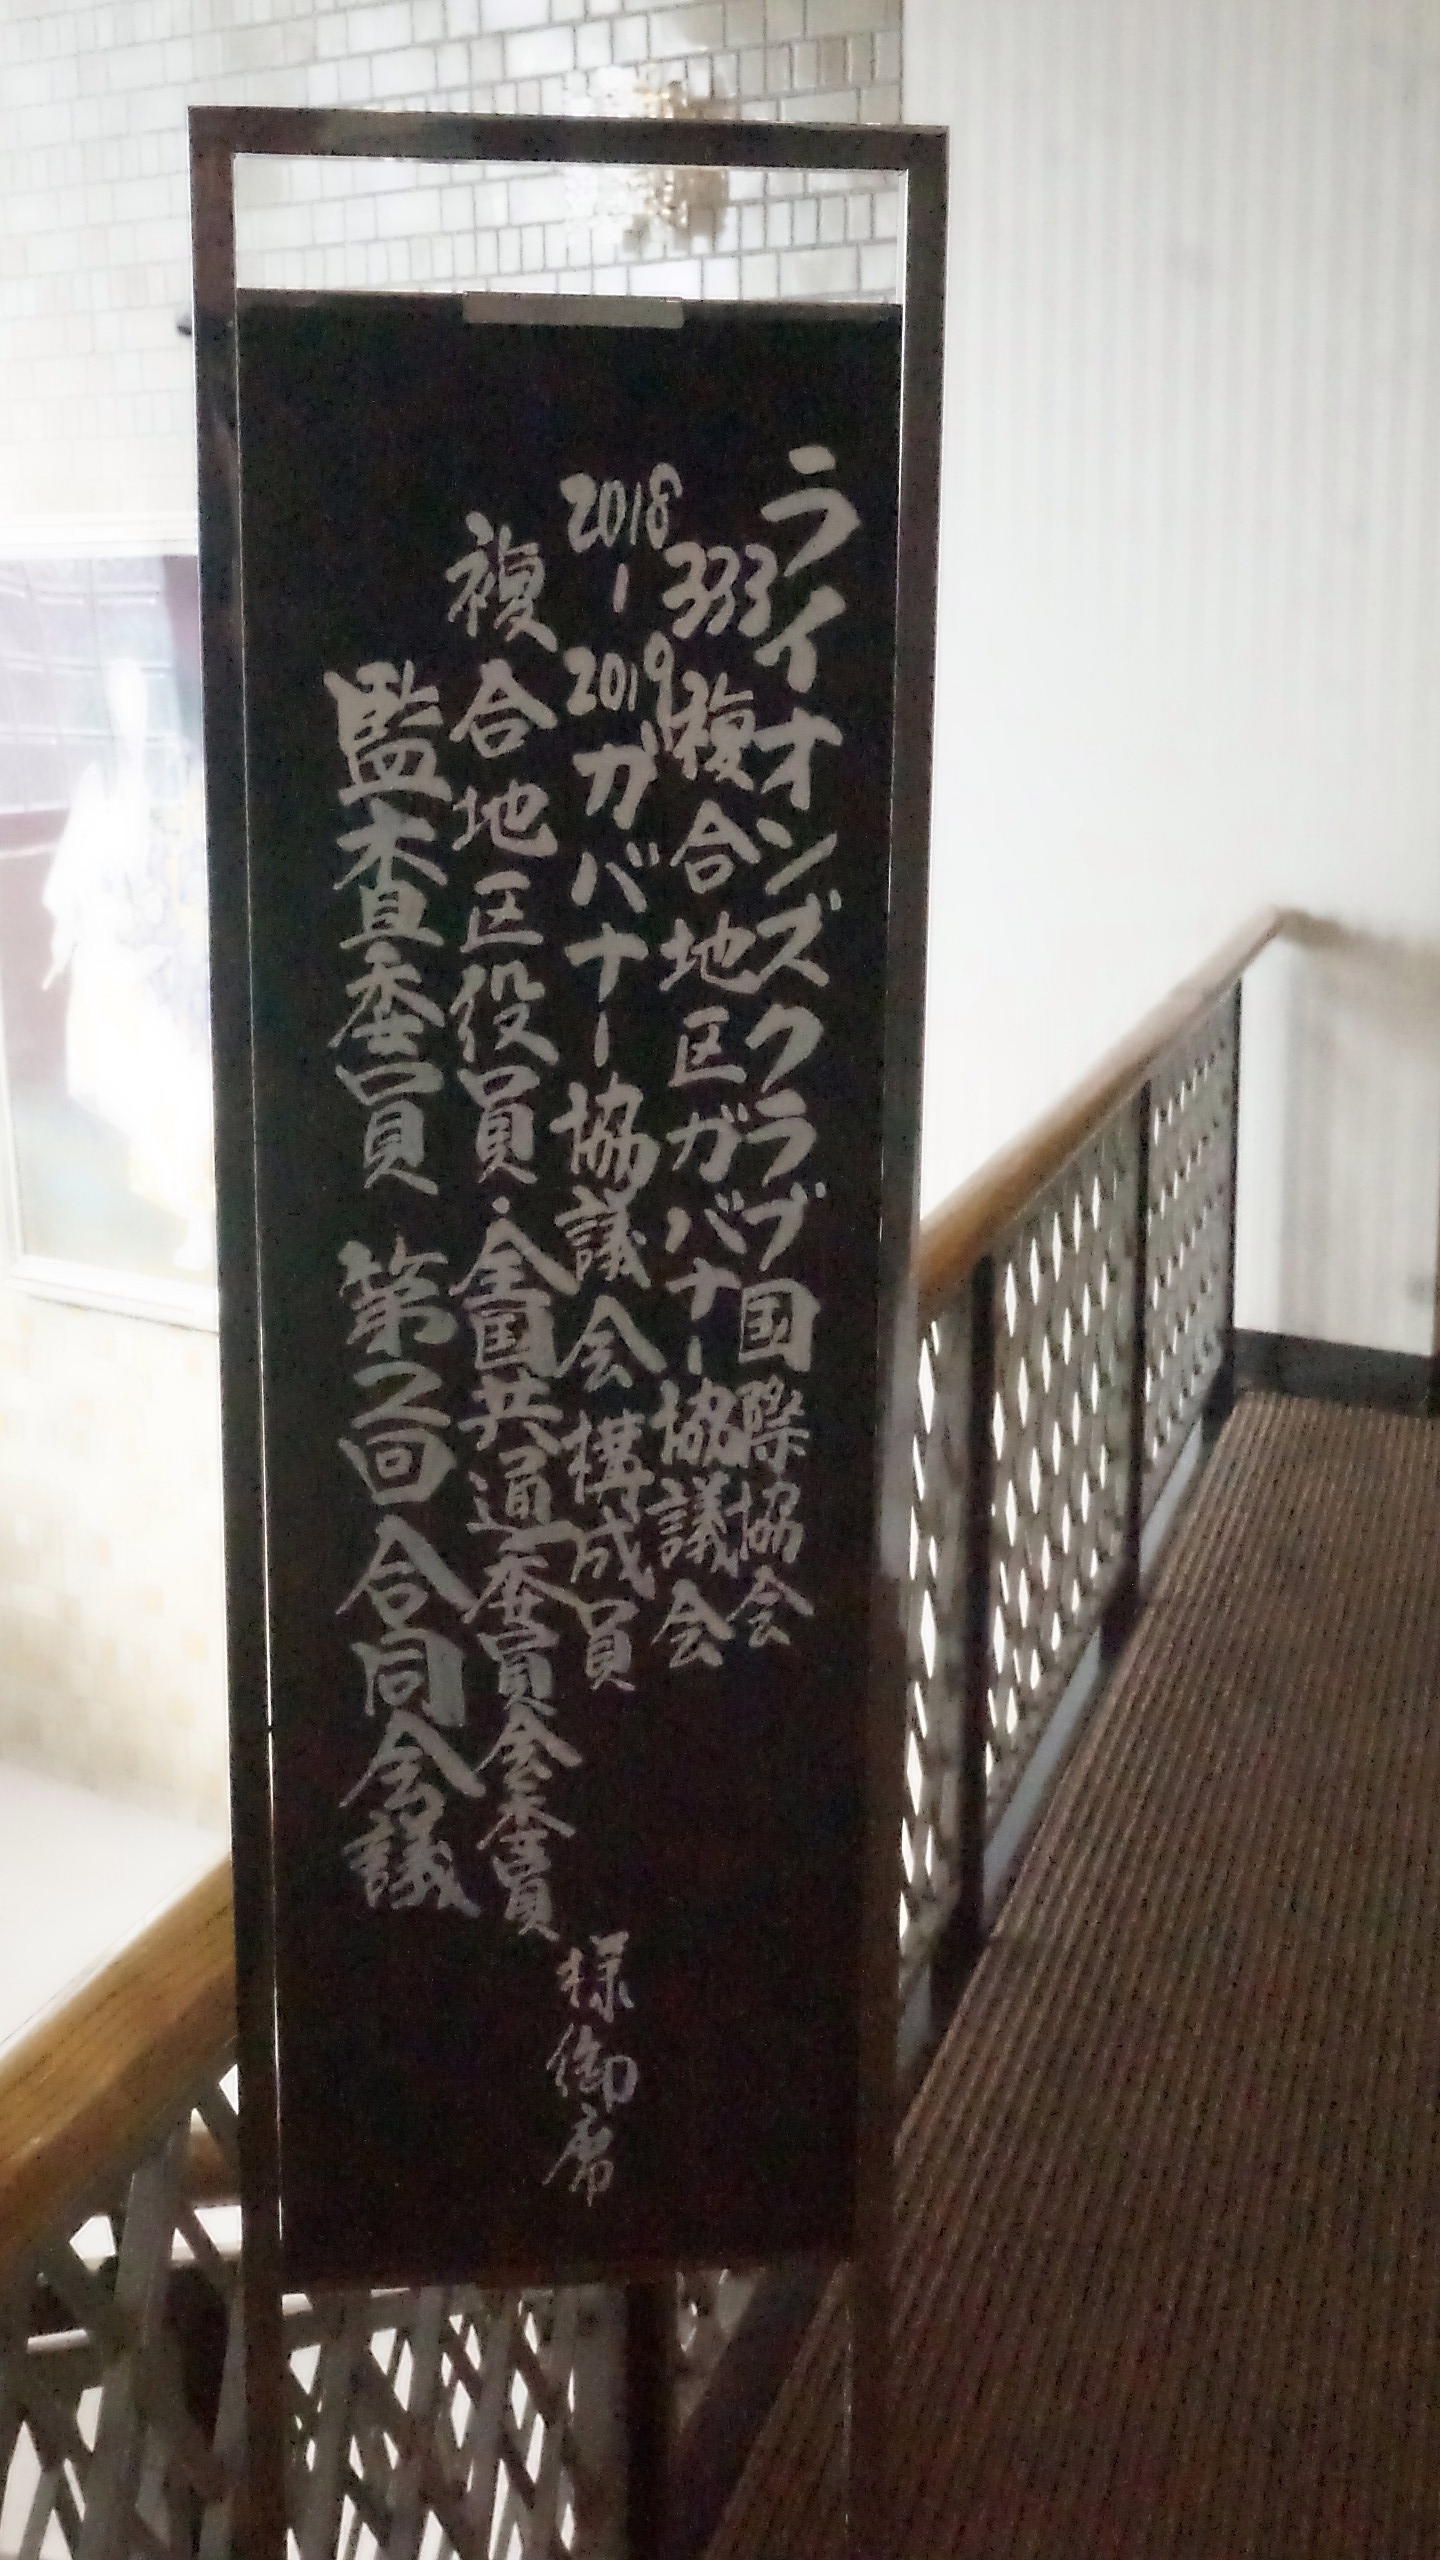 ライオンズクラブ国際協会
333複合地区ガバナー協議会
2018-2019ガバナー協議会構成員
複合地区役員・全国共通委員会委員
監査委員 第2回合同会議
様御席